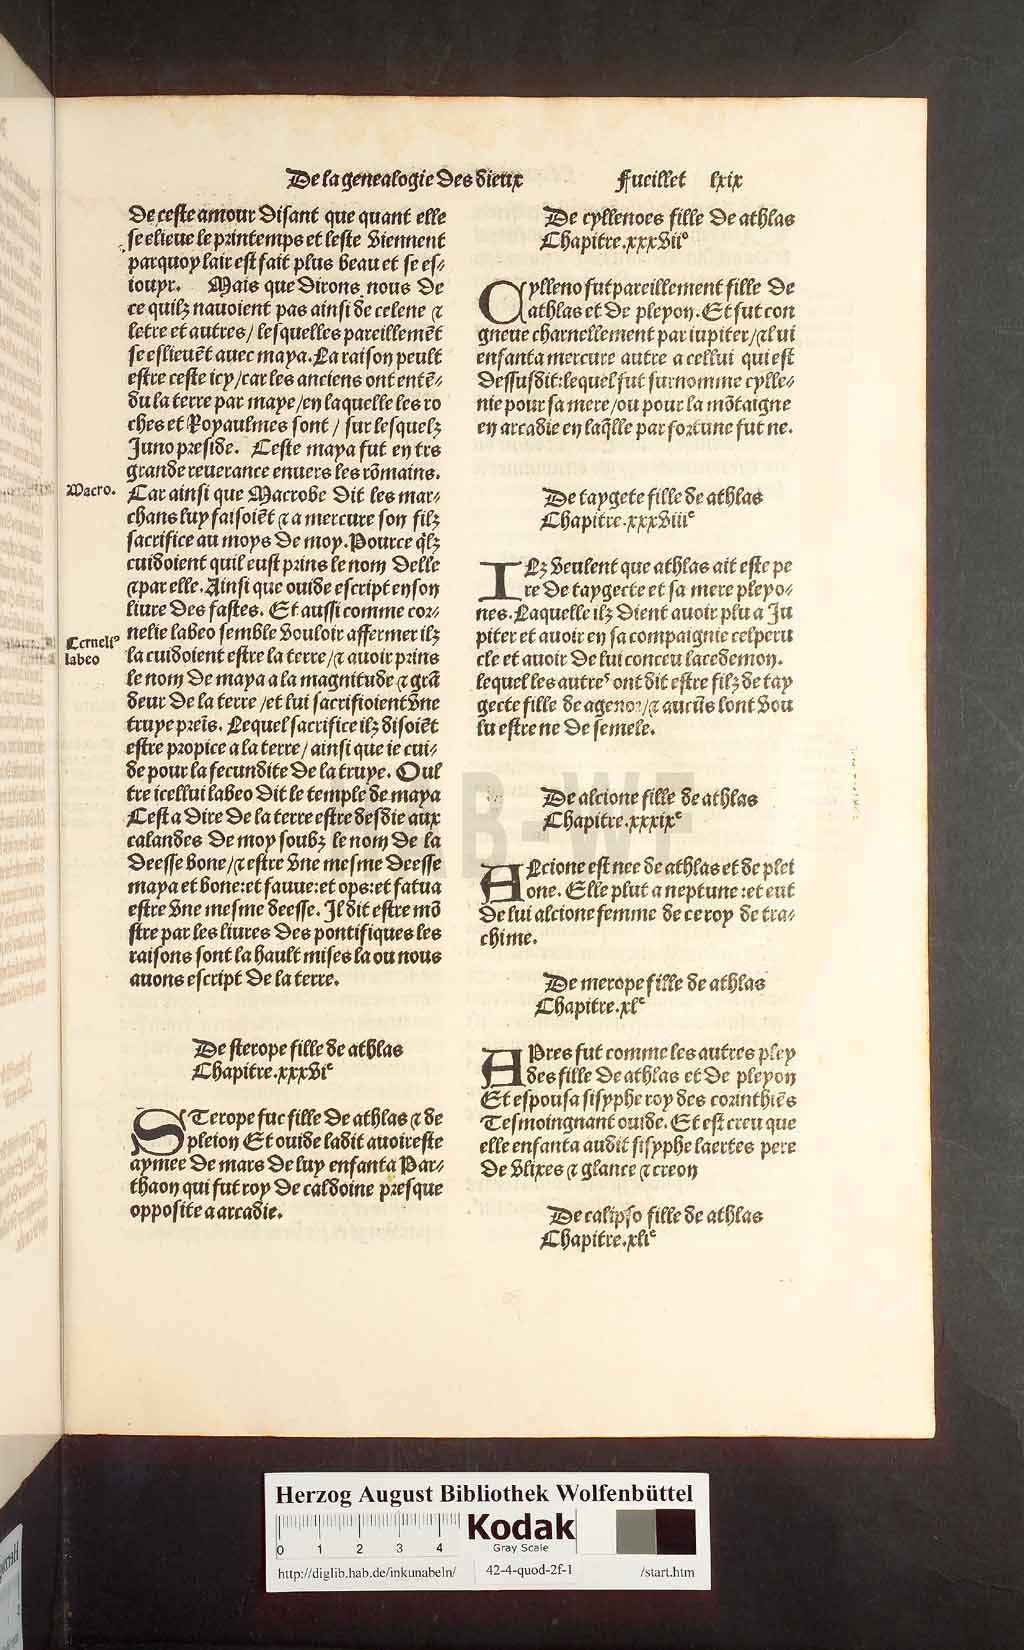 De la genealogie Des dieux Fueillet lxix
De ceste amour Disant que quant elle
se eslieue le printemps et leste viennent
parquoy lair est fait plus beau et se es-
iouyr. Mais que Dirons nous de
ce quilz nauoient pas ainsi de celene ⁊
letre et autres / lesquelles pareillemẽt
se eslieuẽt auec maya. La raison peult
estre ceste icy / car les anciens ont entẽ-
du la terre par maye / en laquelle les ro
ches et Royaulmes sont / sur lesquelz
Juno preside. Ceste maya fut en trs
grande reuerance enuers les rõmains.
Macro.
Car ainsi que Macrobe Dit les mar-
chans luy faisoiẽt ⁊ a mercure son filz
sacrifice au moys De moy. Pource q̃lz
cuidoient quil eust prins le nom Delle
⁊ par elle. Ainsi que ouide escript en son
liure Des fastes. Et aussi comme cor-
Cornelꝰ
labeo
nelie labeo semble vouloir affermer ilz
la cuidoient estre la terre / ⁊ auoir prins
le nom De maya a la magnitude ⁊ grã
deur De la terre / et lui sacrifioient vne
truye preĩs. Lequel sacrifice ilz disoiẽt
estre propice a la terre / ainsi que ie cui-
de pour la fecundite De la truye. Oul
tre icellui labeo Dit le temple de maya
Cest a Dire De la terre estre desdie aux
calandes De moy soubz le nom De la
Deesse bone / ⁊ estre vne mesme Deesse
maya et bone: et fauue: et ops: et fatua
estre vne mesme deesse. Il dit estre mõ
stre par les liures Des pontifiques les
raisons sont la hault mises la ou nous
auons escript De la terre.
De sterope fille de athlas
Chapitre. xxxviᵉ
STerope fuc fille De athlas ⁊ de
pleion Et ouide ladit auoir este
aymee De mars De luy enfanta Par-
thaon qui fut roy De caldoine presque
opposite a arcadie.
De cyllenoes fille De athlas
Chapitre. xxxviiᵒ
Cylleno fut pareillement fille De
athlas et De pleyon. Et fut con
gneue charnellement par iupiter / ⁊ lui
enfanta mercure autre a cellui qui est
Dessusdit: lequel fut surnomme cylle-
nie pour sa mere / ou pour la mõtaigne
en arcadie en laq̃lle par fortune fut ne.
De taygete fille de athlas
Chapitre. xxxviiiᵉ
ILz veulent que athlas ait este pe
re De taygecte et sa mere pleyo-
nes. Laquelle ilz Dient auoir plu a Ju
piter et auoir en sa compaignie celperu
cle et auoir De lui conceu lacedemon.
lequel les autreˢ ont dit estre filz de tay
gecte fille de agenor / ⁊ aucũs lont vou
lu estre ne De semele.
De alcione fille de athlas
Chapitre. xxxixᵉ
ALcione est nee de athlas et de plei
one. Elle plut a neptune: et eut
De lui alcione femme de ce roy de tra-
chime.
De merope fille de athlas
Chapitre. xlᵉ
APres fut comme les autres pley
des fille De athlas et De pleyon
Et espousa sisyphe roy des corinthiẽs
Tesmoingnant ouide. Et est creu que
elle enfanta audit sisyphe laertes pere
De vlixes ⁊ glance ⁊ creon
De calipso fille de athlas
Chapitre. xliᵉ
HAB-WF
Herzog August Bibliothek Wolfenbüttel
0 1 2 3 4
Kodak
Gray Scale
http://diglib.hab.de/inkunabeln/ 42-4-quod-2f-1 /start.htm